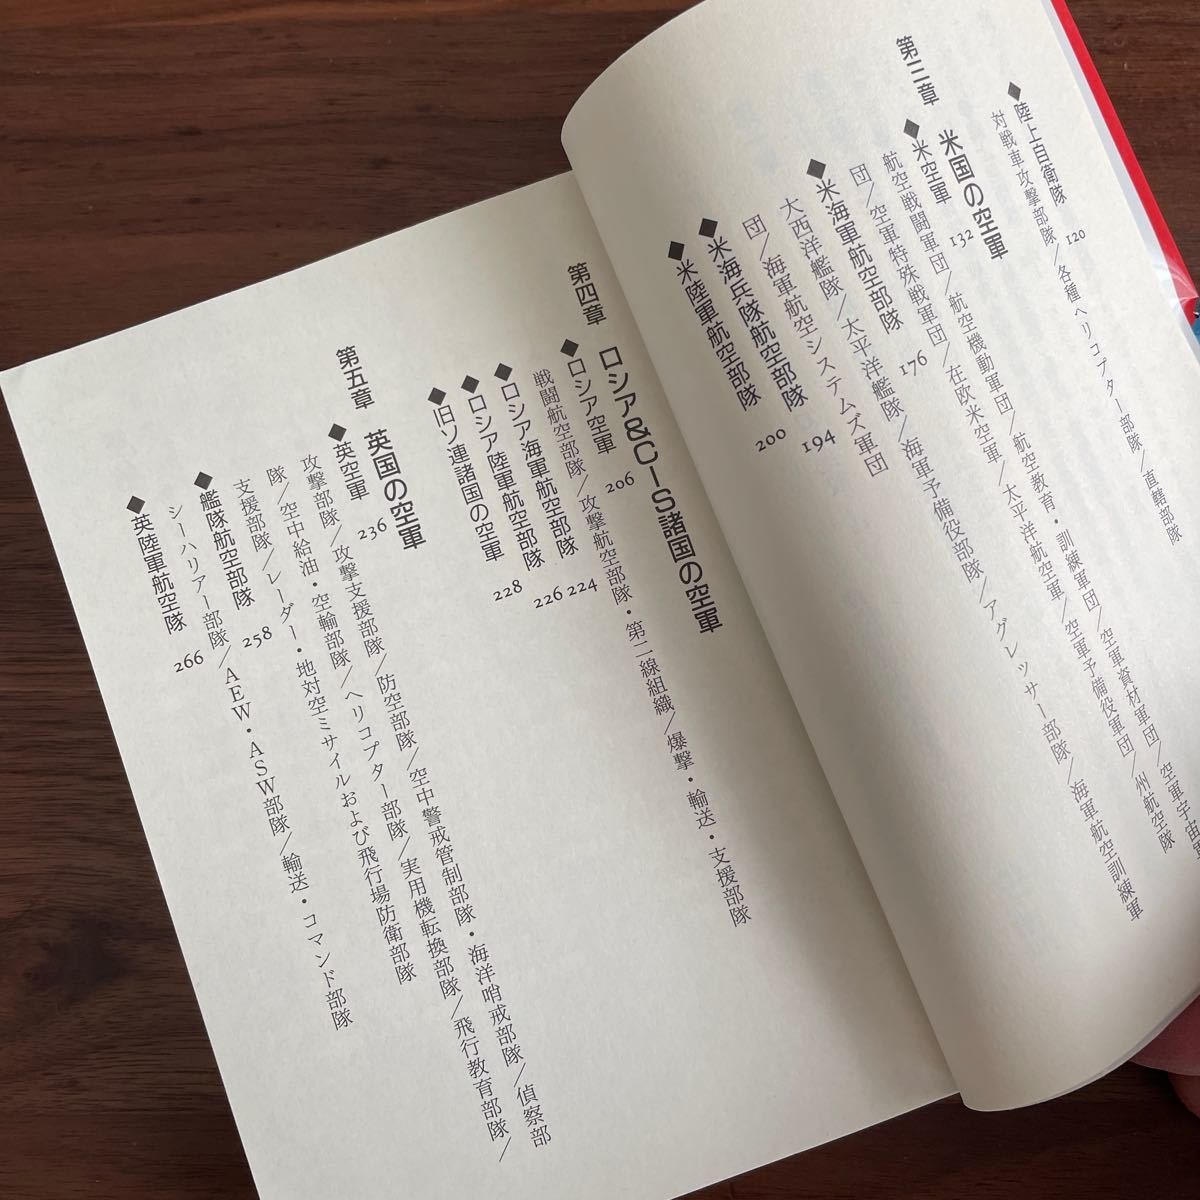 ◆陸上自衛隊 120
対戦車攻撃部隊/各種ヘリコプター部隊/直轄部隊
第三章 米国の空軍
◆米空軍 132
航空戦闘軍団/航空機動軍団/航空教育・訓練軍団/空軍資材軍団/空軍宇宙軍
団/空軍特殊戦軍団/在欧米空軍/太平洋航空軍/空軍予備役軍団/州航空隊
◆米海軍航空部隊 176
大西洋艦隊/太平洋艦隊/海軍予備役部隊/アグレッサー部隊/海軍航空訓練軍
団/海軍航空システムズ軍団
◆米海兵隊航空部隊 194
◆米陸軍航空部隊 200
第四章 ロシア&CIS諸国の空軍
◆ロシア空軍 206
戦闘航空部隊/攻撃航空部隊・第二線組織/爆撃・輸送・支援部隊
◆ロシア海軍航空部隊 224
◆ロシア陸軍航空部隊 226
◆旧ソ連諸国の空軍 228
第五章 英国の空軍
◆英空軍 236
攻撃部隊/攻撃支援部隊/防空部隊/空中警戒管制部隊・海洋哨戒部隊/偵察部
隊/空中給油・空輸部隊/ヘリコプター部隊/実用機転換部隊/飛行教育部隊/
支援部隊/レーダー・地対空ミサイルおよび飛行場防衛部隊
◆艦隊航空部隊 258
シーハリアー部隊/AEW・ASW部隊/輸送・コマンド部隊
◆英陸軍航空隊 266